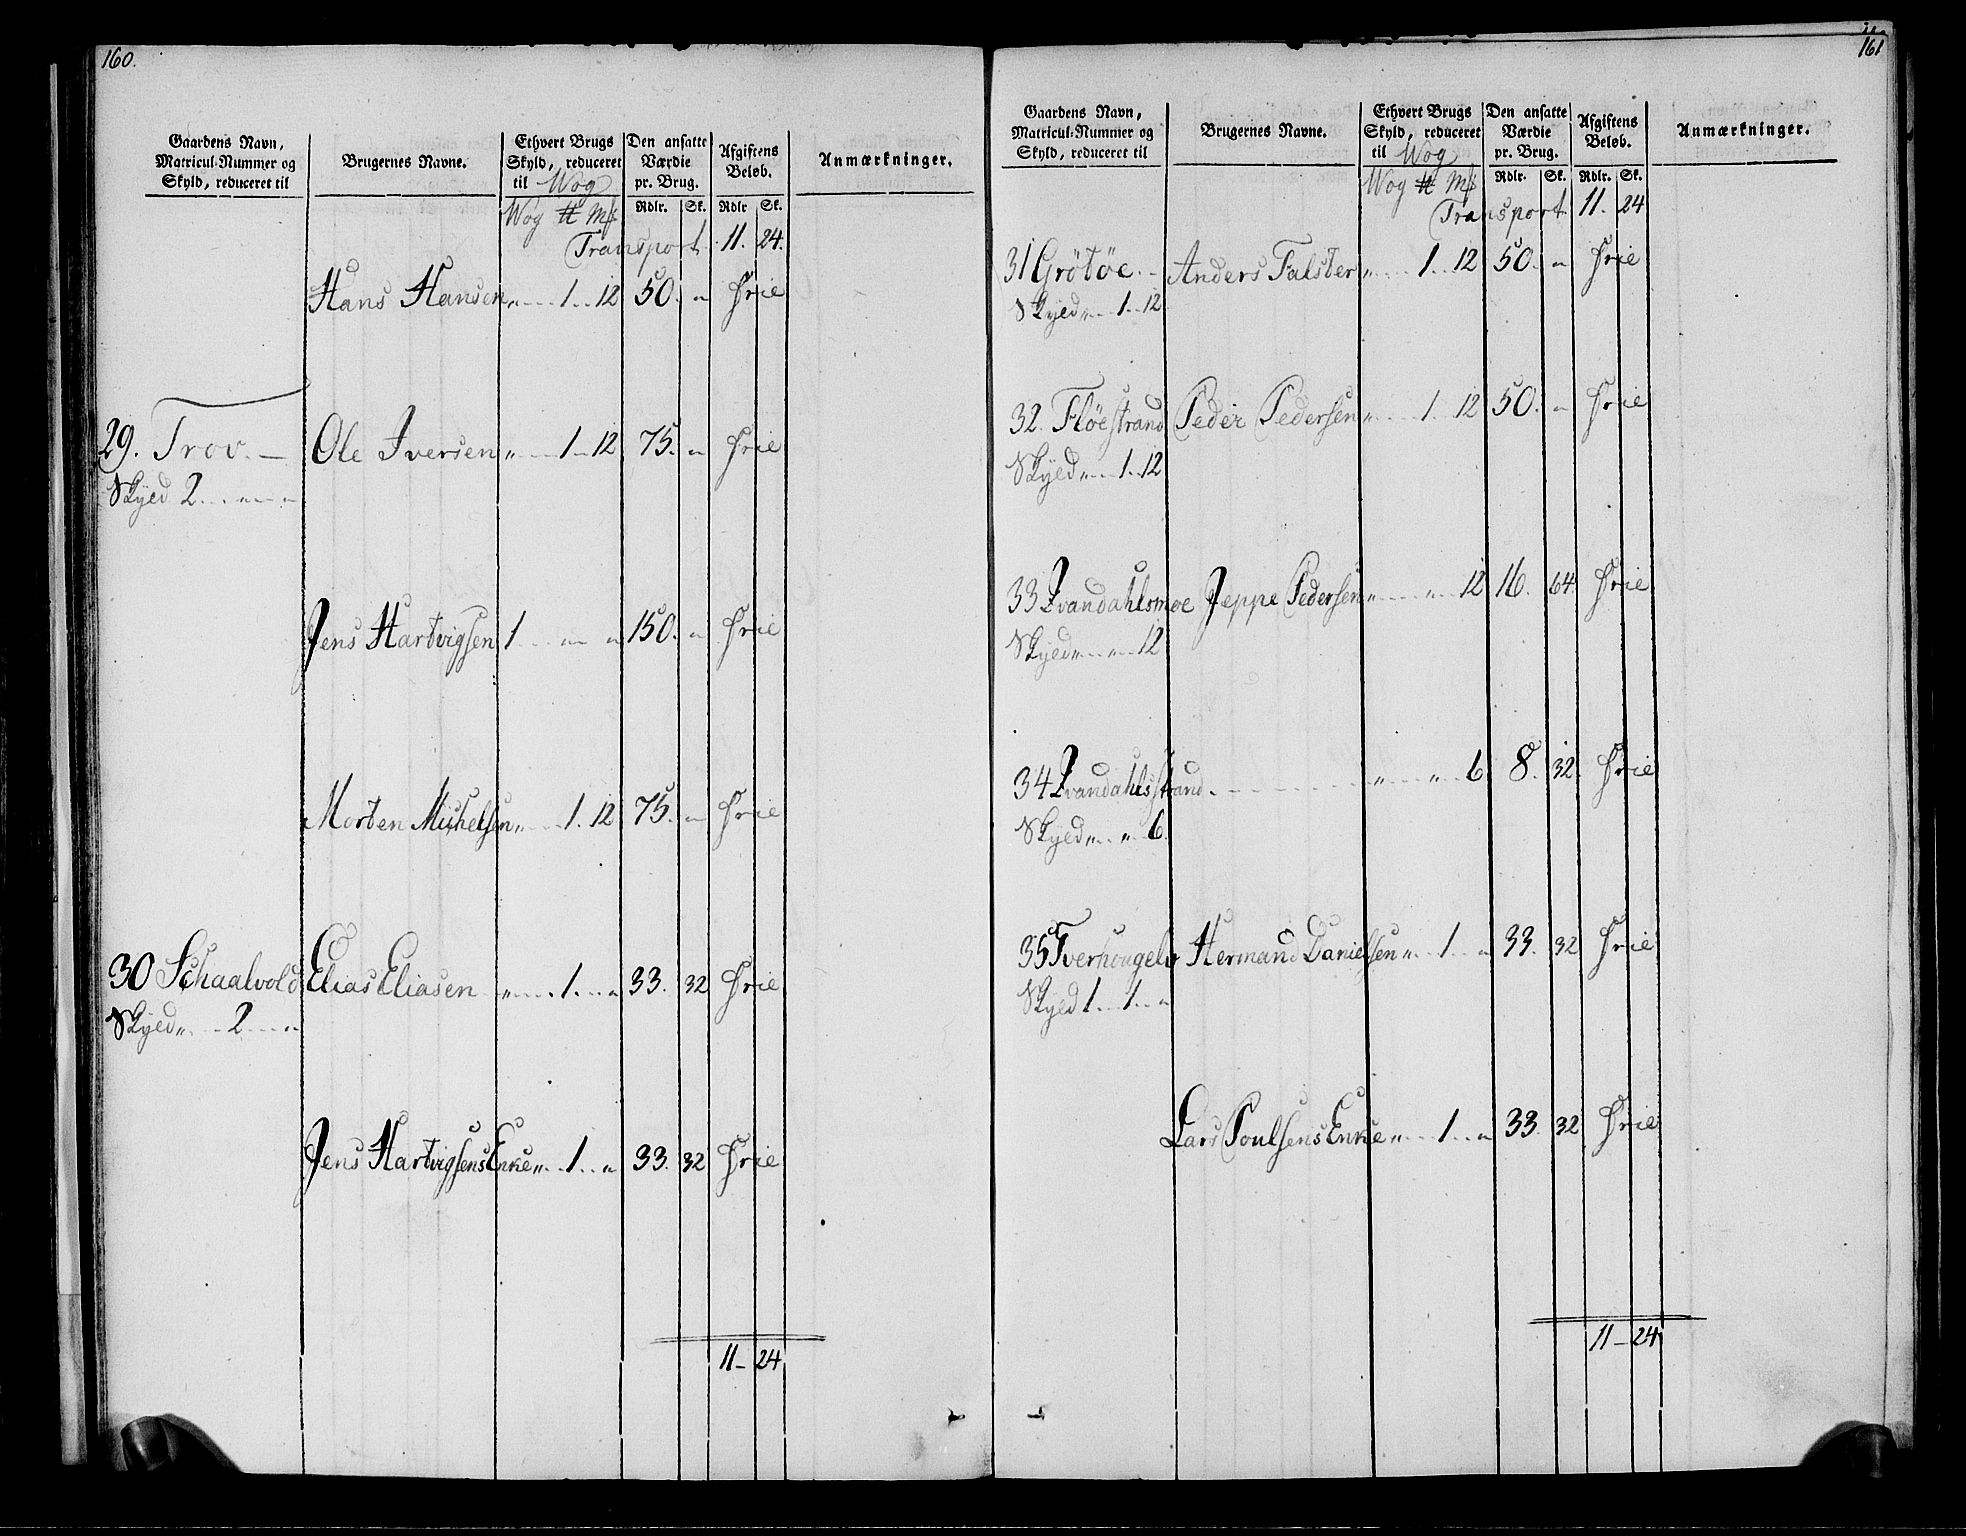 160.
Gaardens Navn, Matricul-Nummer og Skyld, reduceret til
Brugernes Navne.
Ethvert Brugs Skyld, reduceret til Wog
Den ansatte Værdie pr. Brug.
Afgiftens Beløb.
Anmærkninger.
Wog ℔ Mk Rdlr. Sk. Rdlr Sk.
Transport 11. 24.
Hans Hansen „ 1 12 50. „ Frie
29. Trov. Ole Iversen „ 1 12 75. „ Frie
Skyld 2 „ „
Jens Hartvigsen 1 „ „ 150. „ Frie
Morten Michelsen „ 1. 12 75. „ Frie
30 Schaalvold Elias Eliasen „ 1. „ 33. 32 Frie
Skyld „ 2 „
Jens Hartvigsens Enke „ 1 „ 33. 32 Frie
11 – 24
161
Gaardens Navn, Matricul-Nummer og Skyld, reduceret til
Brugernes Navne.
Ethvert Brugs Skyld, reduceret til Wog
Den ansatte Værdie pr. Brug.
Afgiftens Beløb.
Anmærkninger.
Wog ℔ Mk Rdlr. Sk. Rdlr. Sk.
Transport 11. 24
31 Grötöe. Anders Falster „ 1 12 50. „ Frie
Skyld „ 1 12
32. Flöestrand Peder Pedersen „ 1 12 50. „ Frie
Skyld „ 1 12
33 Qvandahlsmoe Jeppe Pedersen „ „ 12 16. 64. Frie
Skyld „ „ 12
34 Qvandahlsstrand „ „ 6 8. 32. Frie
Skyld „ „ 6.
35 Tverhougelv Hermand Danielsen „ 1 „ 33. 32 Frie
Skyld 1 1 „
Lars Poulsens Enke „ 1 „ 33. 32 Frie
11 – 24